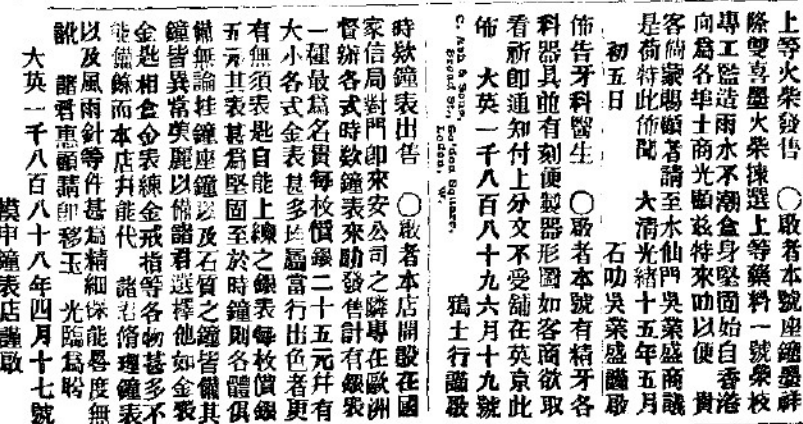 上等火柴發售　〇啟者本號座鐘墨祥
隆雙喜墨火柴揀選上等藥料一號柴枝
專工監造雨水不潮盒身堅固始自香港
向爲各埠士商光顧茲特來叻以便　貴
客倘蒙賜顧者請至水仙門吳業盛商議
是荷特此佈聞　大清光緒十五年五月
初五日　石叻吳業盛謹啟
佈告牙科醫生　〇啟者本號有精牙各
科器具並有刻便製器形圖如客商欲取
看祈即通知付上分文不受舖在英京此
佈　大英一千八百八十九六月十九號
鴉士行謹啟
C. Ash & Sons,
Broad St., Golden Square,
London, W.
時欵鐘表出售　〇啟者本店開設在國
家信局對門即來安公司之隣專在歐洲
督辦各式時欵鐘表來勛發售計有銀表
一種最爲名貴每枚價銀二十五元幷有
大小各式金表甚多均屬當行出色者更
有無須表匙自能上鍊之銀表每枚價銀
五元其表甚爲堅固至於時鐘則各體俱
備無論挂鐘座鐘以及石質之鐘皆備其
鐘皆異常美麗以備諸君選擇他如金表
金匙相盒金表練金戒指等各物甚多不
能備錄而本店幷能代　諸君脩理鐘表
以及風雨針等件甚爲精細保能毫度無
訛　諸君惠顧請即移玉　光臨爲盼
大英一千八百八十八年四月十七號
模申鐘表店謹啟